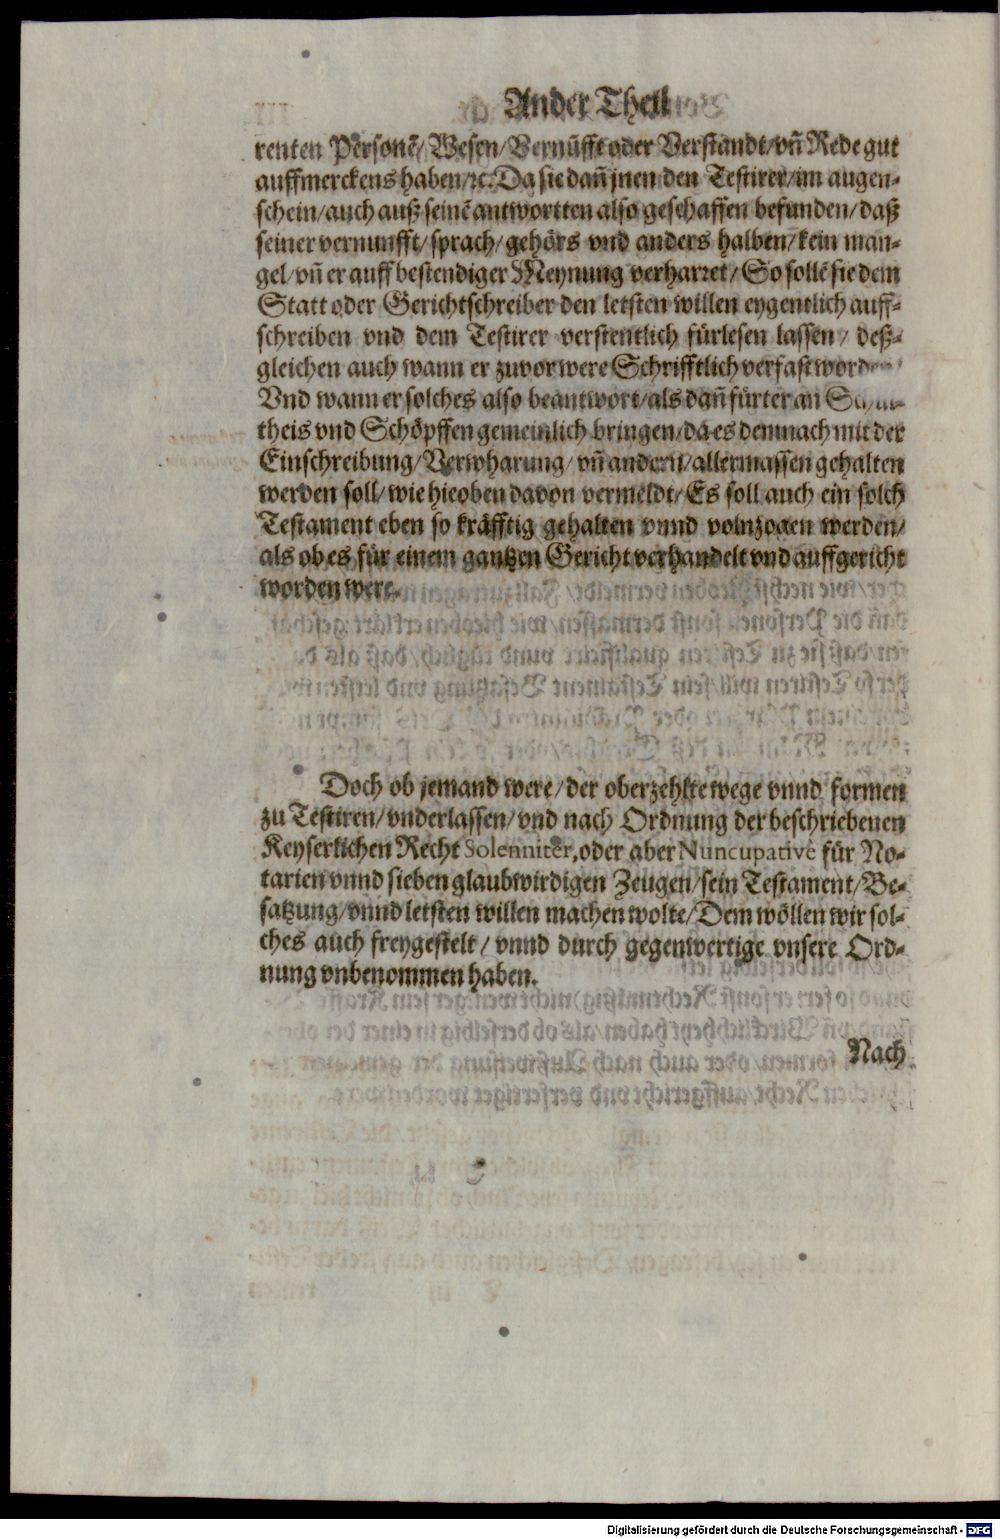 Ander Theil
renten Personẽ/ Wesen/ Vernũfft oder Verstandt/ vñ Rede gut
auffmerckens haben/ ꝛc. Da sie dañ jnen den Testirer/ im augen-
schein/ auch auß seinẽ antwortten also geschaffen befunden/ daß
seiner vernunfft/ sprach/ gehörs vnd anders halben/ kein man-
gel/ vñ er auff bestendiger Meynung verharret/ So sollẽ sie dem
Statt oder Gerichtschreiber den letsten willen eygentlich auff-
schreiben vnd dem Testirer verstentlich fürlesen lassen/ deß-
gleichen auch wann er zuvor were Schrifftlich verfast
Vnd wann er solches also beantwort/ als dañ fürter an
theis vnd Schöpffen gemeinlich bringen/ da es demnach mit der
Einschreibung/ Verwharung/ vñ andern/ allermassen gehalten
werden soll/ wie hieoben davon vermeldt/ Es soll auch ein solch
Testament eben so kräfftig gehalten vnnd volnzogen werden/
als ob es für einem gantzen Gericht verhandelt vnd auffgericht
worden were.
Doch ob jemand were/ der oberzehlte wege vnnd formen
zu Testiren/ vnderlassen/ vnd nach Ordnung der beschriebenen
Keyserlichen Recht Solenniter, oder aber Nuncupativè für No-
tarien vnnd sieben glaubwirdigen Zeugen/ sein Testament/ Be-
satzung/ vnnd letsten willen machen wolte/ Dem wöllen wir sol-
ches auch freygestelt/ vnnd durch gegenwertige vnsere Ord-
nung vnbenommen haben.
Nach
Digitalisierung gefördert durch die Deutsche Forschungsgemeinschaft - DFG